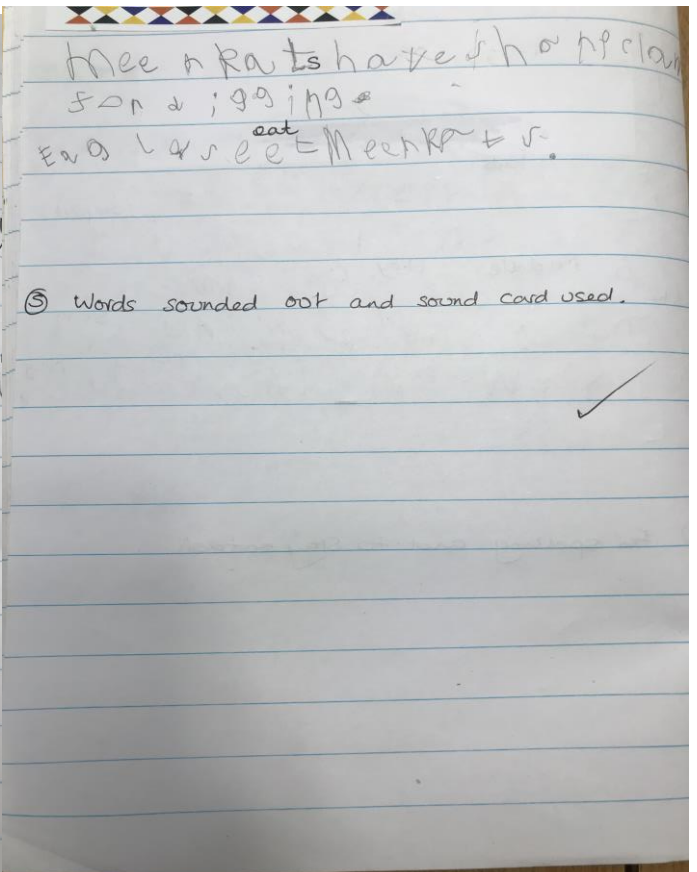 Meerkats have sharp claw
for digging.
eat
Eagls eet Meerkats.
Ⓢ Words sounded oot and sound card used.